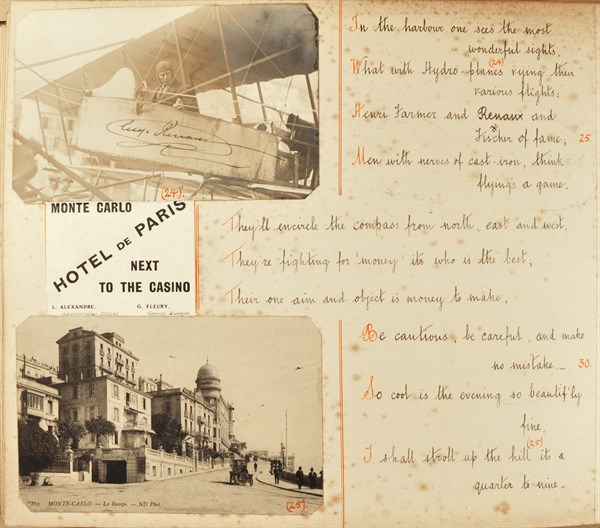 Eug. Renaux
(24).
MONTE CARLO
HOTEL DE PARIS
NEXT
TO THE CASINO
L. ALEXANDRE,
G. FLEURY,
Administrateur Délégué
General Manager
MONTE-CARLO. — La Rampe. — ND Phot.
(25).
In the harbour one sees the most
wonderful sights,
(24)
What with Hydro-planes vying their
various flights;
Henri Farmer and Renaux and
Fischer of fame; 25.
Men with nerves of cast-iron, think
flying's a game.
They'll encircle the compass from north, east and west,
They're fighting for 'money' its who is the best,
Their one aim and object is money to make,
Be cautious, be careful, and make
no mistake_ 30.
So cool is the evening so beautif'ly
fine,
(25)
I shall stroll up the hill its a
quarter to nine_